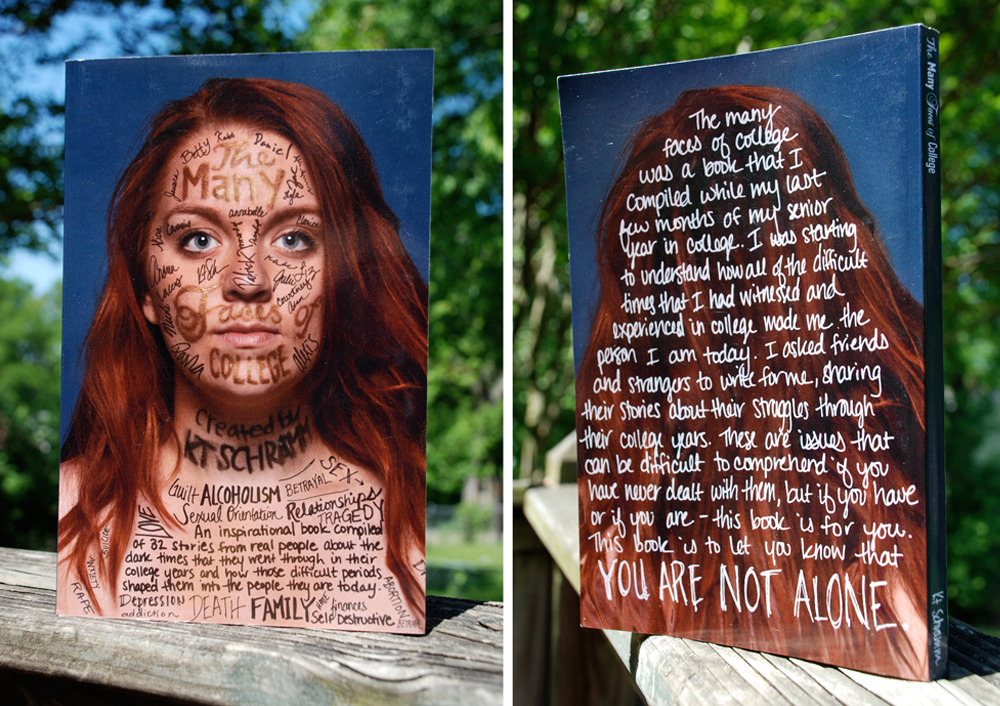 Betty
Daniel
The
Many
annabelle
Patrick
Faces of
Courtney
COLLEGE
Created by
KT SCHRAMM
SEX
Guilt ALCOHOLISM BETRAYAL
Sexual Orientation Relationships
TRAGEDY
LOVE
An inspirational book compiled
of 32 stories from real people about the
dark times that they went through in their
college years and how those difficult periods
shaped them into the people they are today.
RAPE
Depression DEATH FAMILY HATE finances
addiction Self Destructive
ABORTION
The many
faces of college
was a book that I
compiled while my last
few months of my senior
year in college. I was starting
to understand how all of the difficult
times that I had witnessed and
experienced in college made me the
person I am today. I asked friends
and strangers to write for me, sharing
their stories about their struggles through
their college years. These are issues that
can be difficult to comprehend if you
have never dealt with them, but if you have
or if you are - this book is for you.
This book is to let you know that
YOU ARE NOT ALONE.
The Many Faces of College
Kt Schramm